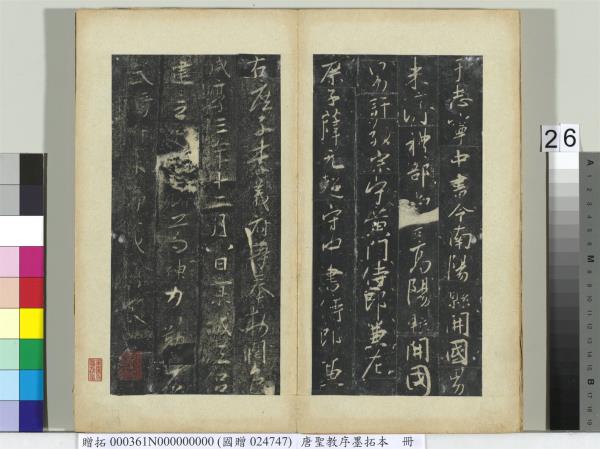 于志寧中書令南陽縣開國男
来濟禮部尚書高陽縣開國
男許敬宗守黄門侍郎兼左
庶子薛元超守中書侍郎兼
右庶子李義府等奉敕潤色
咸亨三年十二月八日京城法侣
建立
文林郎 神力勒石
26
A
1
2
3
4
5
6
M
8
9
10
11
12
13
14
15
B
17
18
19
贈拓 000361N000000000 (國贈 024747) 唐聖教序墨拓本 冊